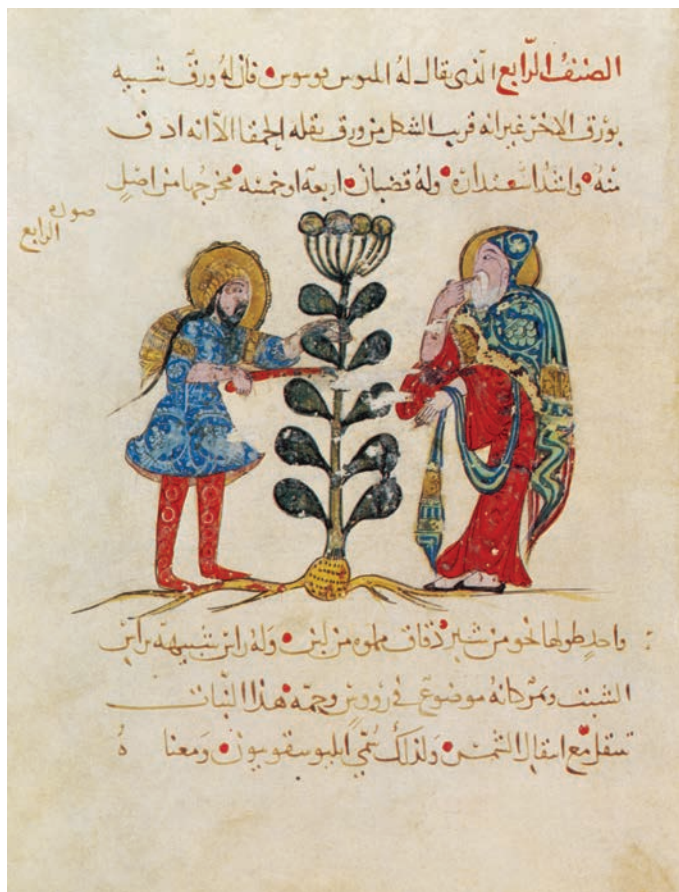 الصنف الرابع الذي يقال له فان له ورق شبيه
بورق الاخر غير انه قريب الشكل من ورق بقله الحمقا الا انه ادق
منه واشد استدارة وله قضبان اربعة او خمسه مخرجها من اصل
صورة
الرابع
واحد طولها نحو من شبر دقاق مملوه من لبن وله راس شبيهه براس
الشبت وثمر كانه موضوع في رووس وجمه هذا النبات
تنتقل مع انتقال الشمس ولذلك سمي ومعناه